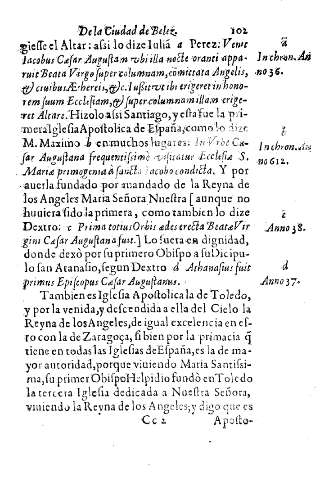 De la Ciudad de Belez. 102
giesse el Altar: assi lo dize Iuliã a Perez: Venit
Iacobus Cæsar Augustam vbi illa nocte oranti appa-
ruit Beata Virgo super columnam, comitata Angelis,
& ciuibus Æthereis, &c. Iussit vt ibi erigeret in honõ-
rem suum Ecclesiam, & super columnam illam erige-
ret Altare. Hizolo assi Santiago, y esta fue la pri-
mera Iglesia Apostolica de España, como lo dize
M. Maximo b en muchos lugares: In Vrbe Cæ-
sar Augustana frequentissimè visitatur Ecclesia S.
Mariæ primogenia à sancto Iacobo condita. Y por
auerla fundado por mandado de la Reyna de
los Angeles Maria Señora Nuestra [aunque no
huuiera sido la primera, como tambien lo dize
Dextro: c Prima totius Orbis ædes erecta Beatæ Vir
gini Cæsar Augustana fuit.] Lo fuera en dignidad,
donde dexò por su primero Obispo a su Discipu-
lo san Atanasio, segun Dextro d Athanasius fuit
primus Episcopus Cæsar Augustanus.
Tambien es Iglesia Apostolica la de Toledo,
y por la venida, y descendida a ella del Cielo la
Reyna de los Angeles, de igual excelencia en es-
tro con la de Zaragoça, si bien por la primacia q̃
tiene en todas las Iglesias de España, es la de ma-
yor autoridad, porque viuiendo Maria Santissi-
ma, su primer Obispo Helpidio fundò en Toledo
la tercera Iglesia dedicada a Nuestra Señora,
viuiendo la Reyna de los Angeles; y digo que es
Cc 2 Aposto-
a
In chron. An
no 36.
b
In chron. An
no 612.
c
Anno 38.
d
Anno 37.